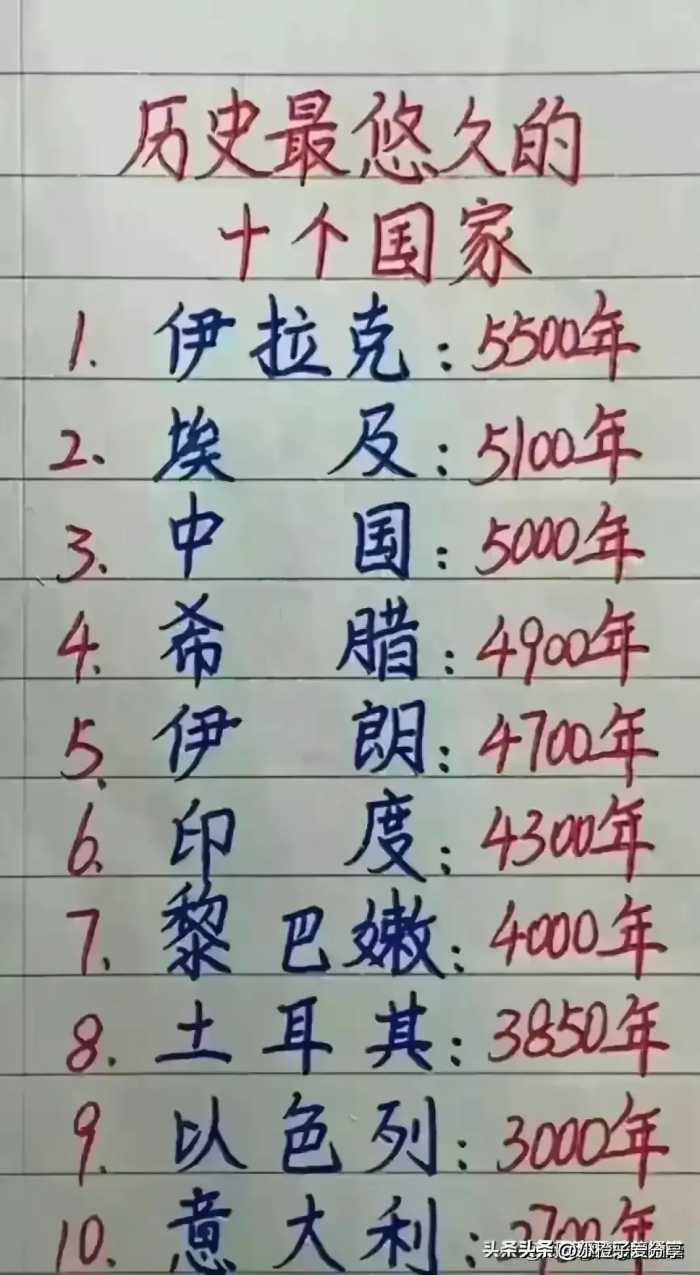 历史最悠久的
十个国家
1. 伊拉克：5500年
2. 埃及：5100年
3. 中国：5000年
4. 希腊：4900年
5. 伊朗：4700年
6. 印度：4300年
7. 黎巴嫩：4000年
8. 土耳其：3850年
9. 以色列：3000年
10. 意大利：2700年
头条